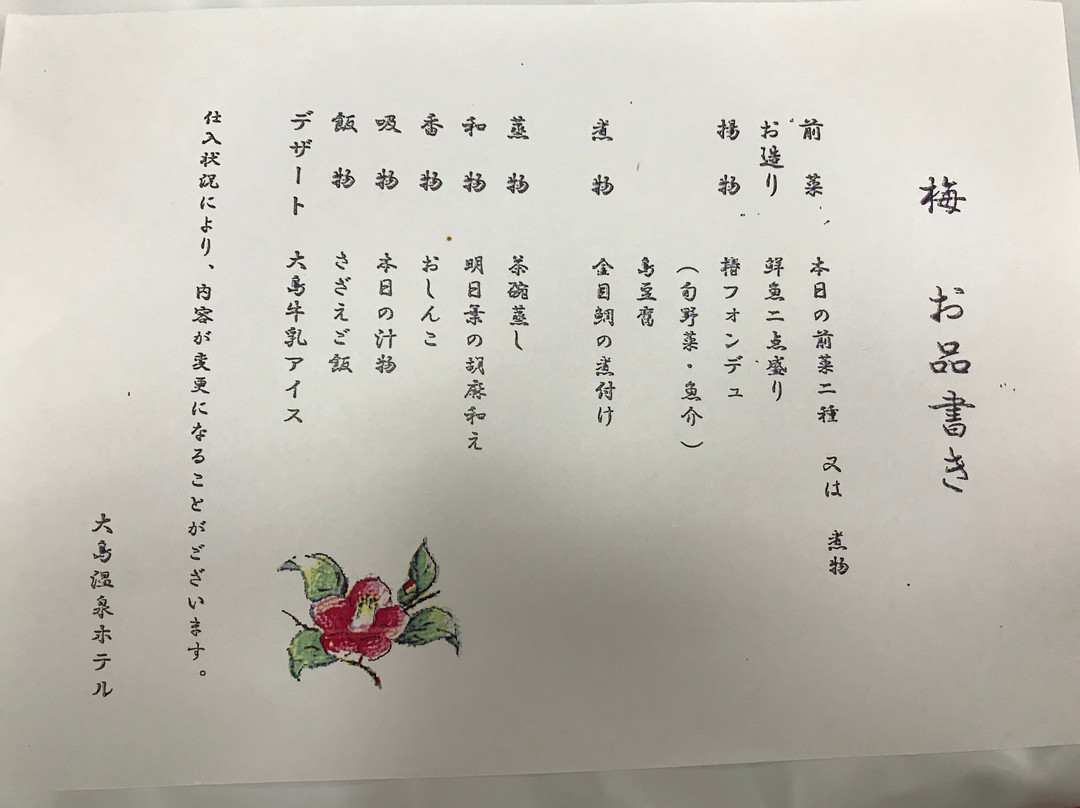 梅 お品書き
前菜 本日の前菜二種 又は 煮物
お造り 鮮魚二点盛り
揚物 椿フォンデュ
(旬野菜・魚介)
島豆腐
煮物 金目鯛の煮付け
蒸物 茶碗蒸し
和物 明日葉の胡麻和え
香物 おしんこ
吸物 本日の汁物
飯物 さざえご飯
デザート 大島牛乳アイス
仕入状況により、内容が変更になることがございます。
大島温泉ホテル